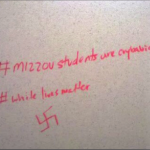 # mizzou students are
# white lives matter